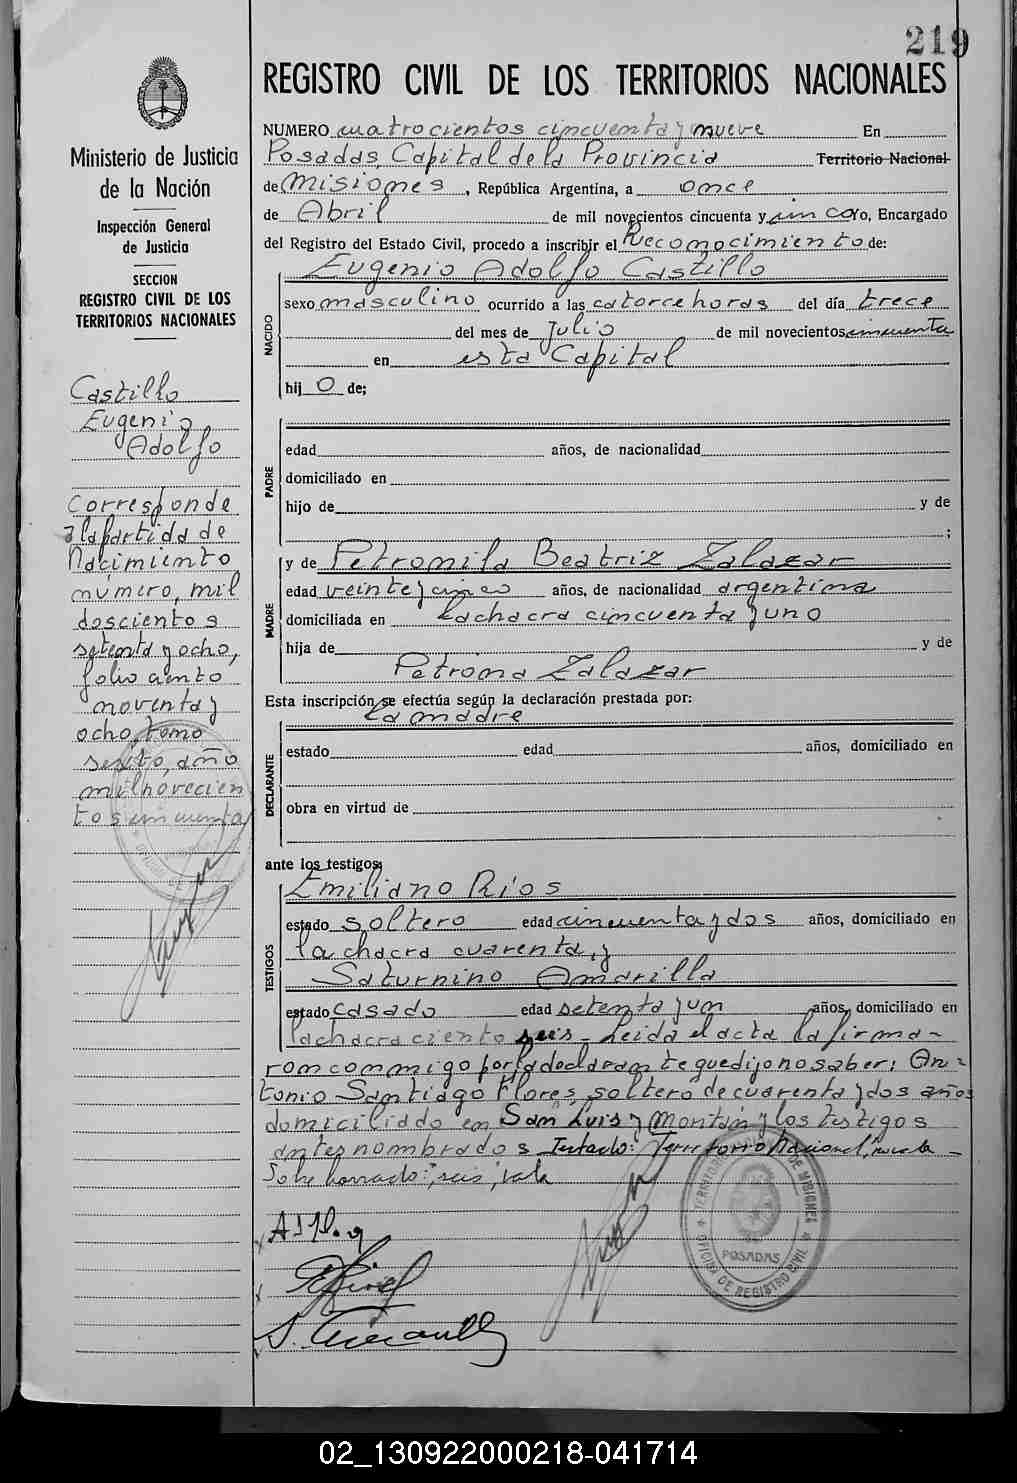 219
REGISTRO CIVIL DE LOS TERRITORIOS NACIONALES
Ministerio de Justicia
de la Nación
Inspección General
de Justicia
SECCION
REGISTRO CIVIL DE LOS
TERRITORIOS NACIONALES
Castillo
Eugenio
Adolfo
Corresponde
a la partida de
Nacimiento
número, mil
doscientos
setenta y ocho,
folio ciento
noventa y
ocho, tomo
sexto, año
mil novecien
tos cincuenta
NUMERO cuatrocientos cincuenta y nueve En
Posadas, Capital de la Provincia Territorio Nacional
de Misiones, República Argentina, a once
de Abril de mil novecientos cincuenta y un coro, Encargado
del Registro del Estado Civil, procedo a inscribir el Reconocimiento de:
Eugenio Adolfo Castillo
NACIDO
sexo masculino ocurrido a las catorce horas del día trece
del mes de Julio de mil novecientos cincuenta
en esta Capital
hij o de;
PADRE
edad años, de nacionalidad
domiciliado en
hijo de y de
;
MADRE
y de Petronila Beatriz Zalazar
edad veinte y cinco años, de nacionalidad argentina
domiciliada en la chacra cincuenta y uno
hija de y de
Petrona Zalazar
Esta inscripción se efectúa según la declaración prestada por:
la madre
DECLARANTE
estado edad años, domiciliado en
obra en virtud de
ante los testigos;
Emiliano Ríos
TESTIGOS
estado soltero edad cincuenta y dos años, domiciliado en
la chacra cuarenta, y
Saturnino Amarilla
estado casado edad setenta y un años, domiciliado en
la chacra ciento seis - Leida el acta la firma-
ron conmigo por la declarante que dijo no saber: An-
tonio Santiago Flores, soltero de cuarenta y dos años
domiciliado en San Luis y Montan y los testigos
antes nombrados Testado: "Territorio Nacional", no vale -
Sobre borrado: "seis", vale
POSADAS
OFICINA DE REGISTRO CIVIL
02_130922000218-041714